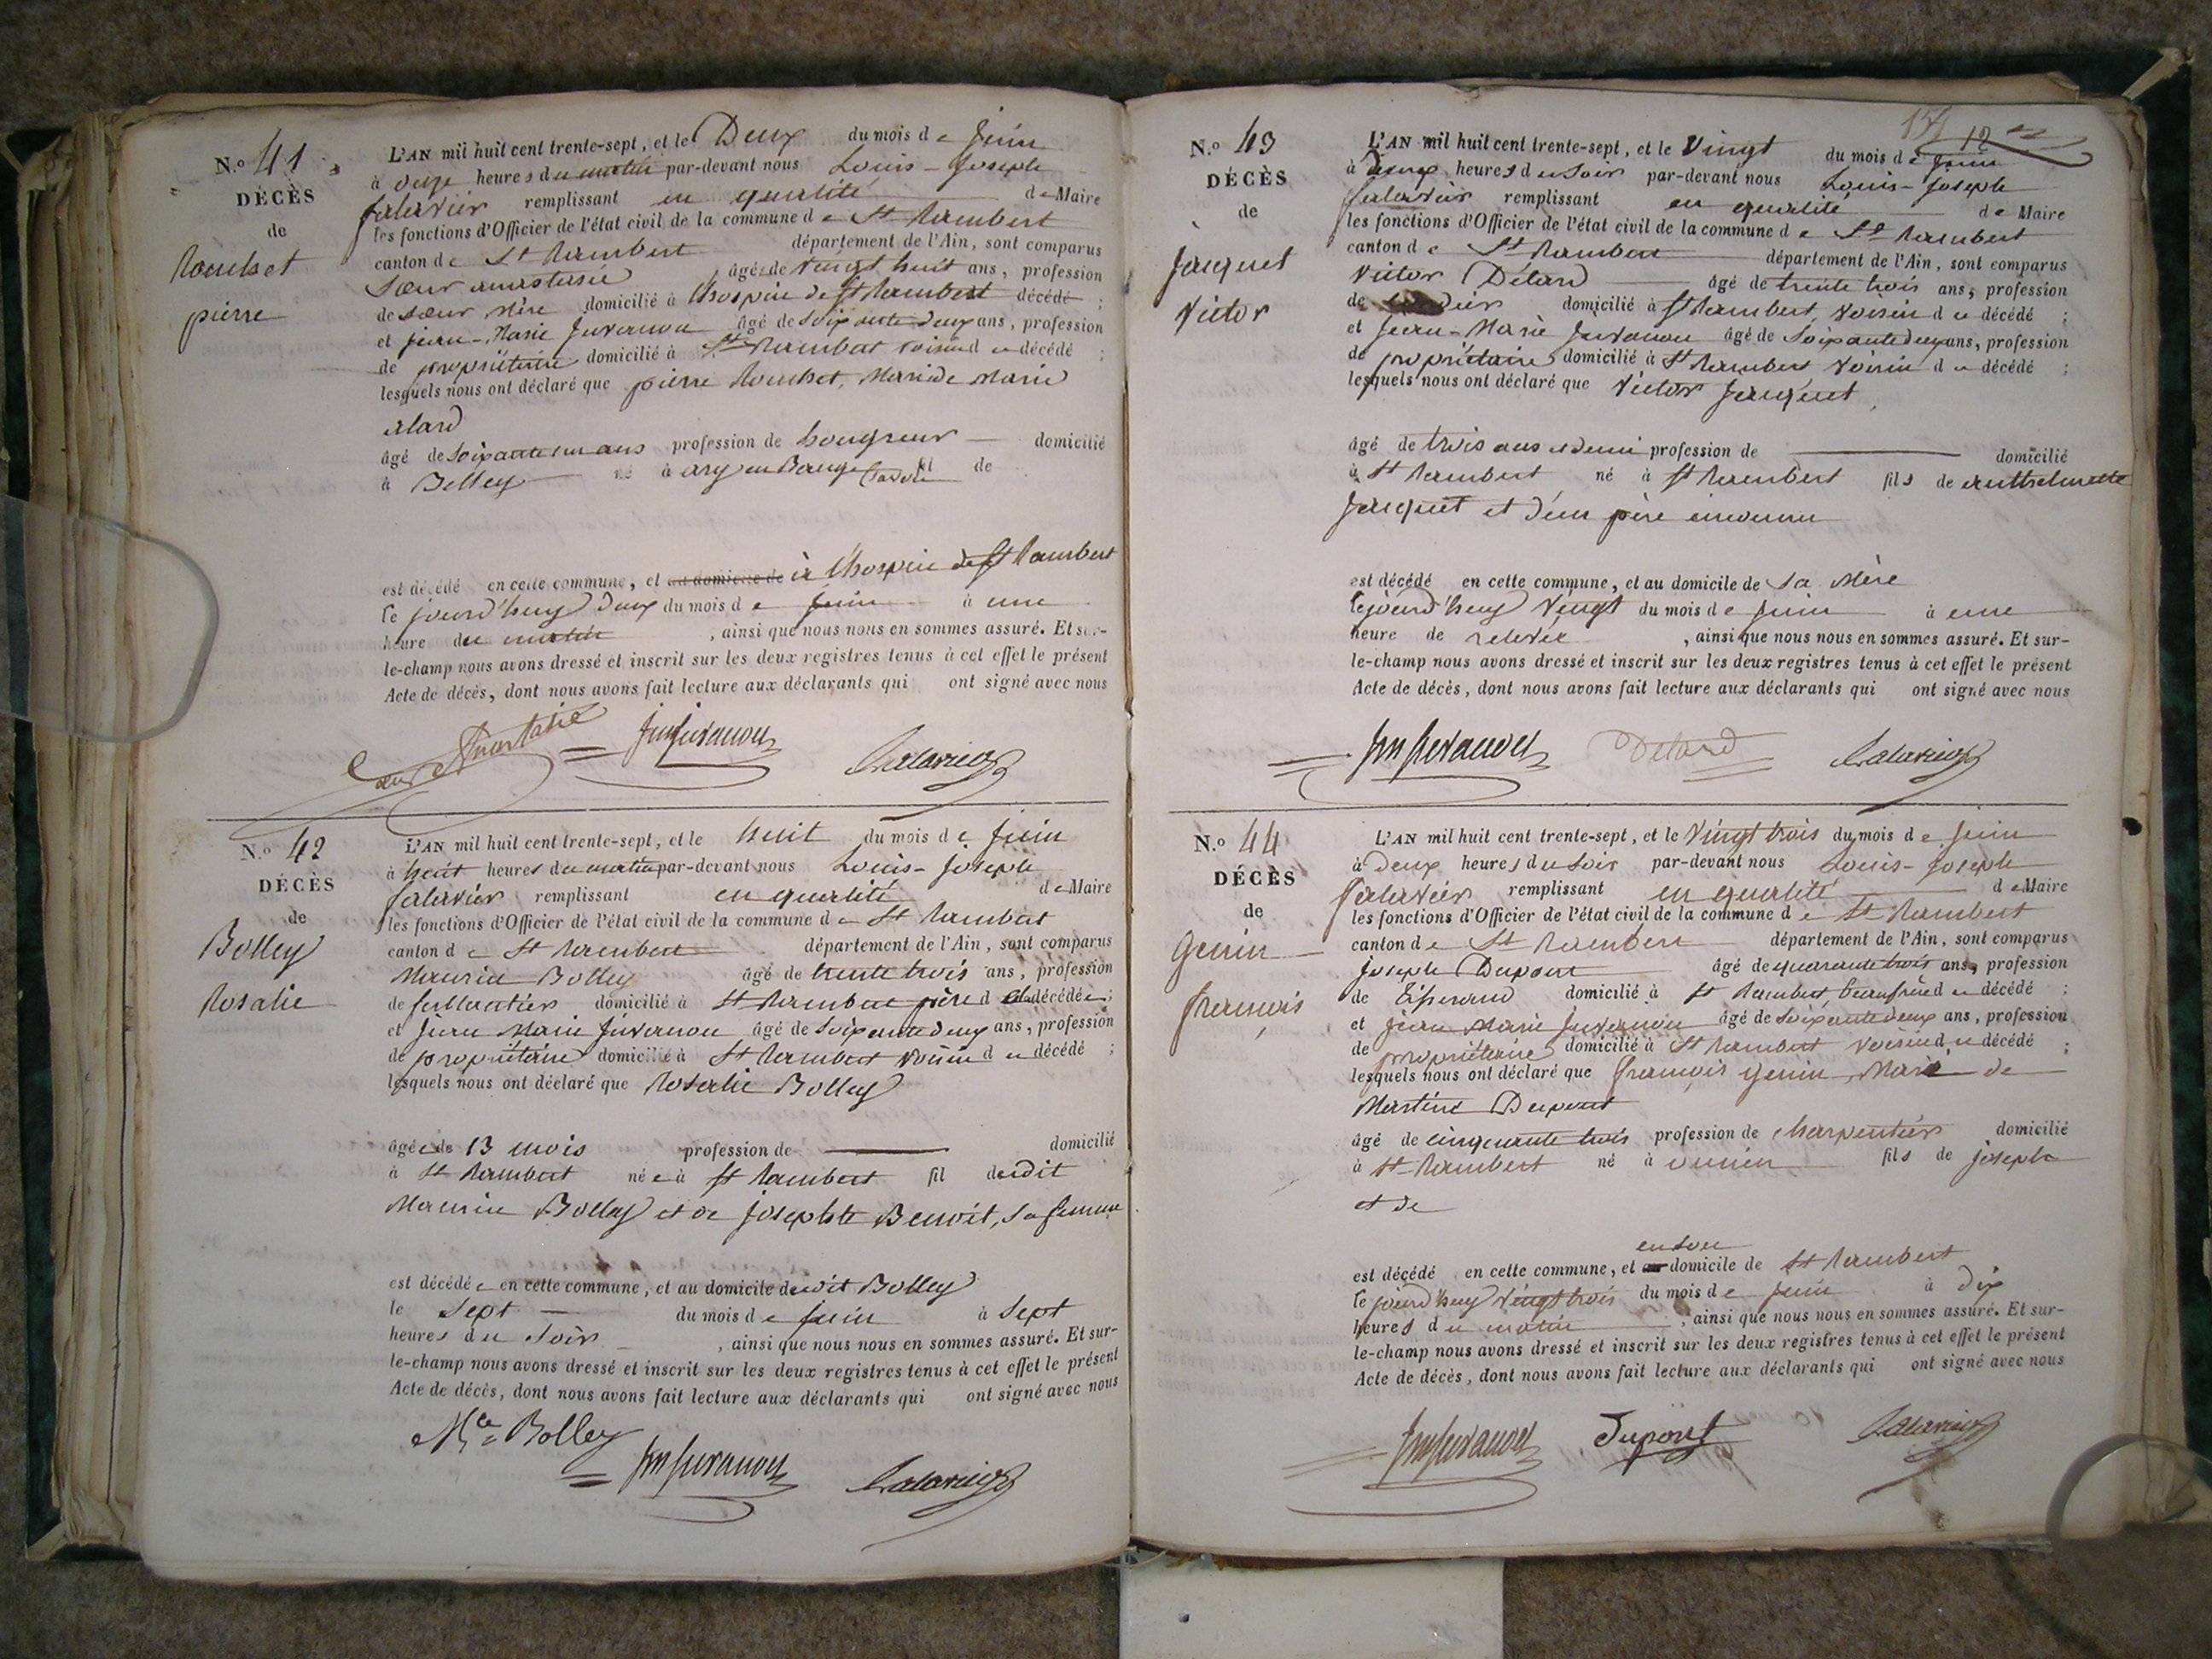 N.o 41
DÉCÈS
de
Rouchet
pierre
L'AN mil huit cent trente-sept, et le Deux du mois de Juin
à onze heures du matin par-devant nous Louis-Joseph
Salavier remplissant en qualité de Maire
les fonctions d'Officier de l'état civil de la commune de St Rambert
canton de St Rambert département de l'Ain, sont comparus
Sœur anastasie âgée de vingt huit ans, profession
de sœur mère domicilié à l'hospice de St Rambert décédé ;
et jean-Marie Juvanon âgé de Soixante deux ans, profession
de propriétaire domicilié à St Rambert voisin du décédé ;
lesquels nous ont déclaré que pierre Rouchet, Mari de Marie
alard
âgé de Soixante un ans profession de domicilié
à Belley né à ary en Bauge Savoie fil de
est décédé en cette commune, et au domicile de à l'hospice de St Rambert
le jourd'huy deux du mois de Juin à une
heure du matin, ainsi que nous nous en sommes assuré. Et sur-
le-champ nous avons dressé et inscrit sur les deux registres tenus à cet effet le présent
Acte de décès, dont nous avons fait lecture aux déclarants qui ont signé avec nous
Sœur Anastasie Jm Juvanon Salavier
N.o 42
DÉCÈS
de
Bolley
Rosalie
L'AN mil huit cent trente-sept, et le huit du mois de Juin
à huit heures du matin par-devant nous Louis-Joseph
Salavier remplissant en qualité de Maire
les fonctions d'Officier de l'état civil de la commune de St Rambert
canton de St Rambert département de l'Ain, sont comparus
Maurice Bolley âgé de trente trois ans, profession
de ferblantier domicilié à St Rambert père de la décédée ;
et jean Marie Juvanon âgé de Soixante deux ans, profession
de propriétaire domicilié à St Rambert voisin du décédé ;
lesquels nous ont déclaré que Rosalie Bolley
âgée de 13 mois profession de domicilié
à St Rambert née à St Rambert fil dudit
Maurice Bolley et de josephte Benoit, sa femme
est décédée en cette commune, et au domicile dudit Bolley
le Sept du mois de juin à Sept
heures du soir, ainsi que nous nous en sommes assuré. Et sur-
le-champ nous avons dressé et inscrit sur les deux registres tenus à cet effet le présent
Acte de décès, dont nous avons fait lecture aux déclarants qui ont signé avec nous
Mce Bolley Jm Juvanon Salavier
12
N.o 43
DÉCÈS
de
Jacquet
Victor
L'AN mil huit cent trente-sept, et le Vingt du mois de Juin
à Deux heures du soir par-devant nous Louis-Joseph
Salavier remplissant en qualité de Maire
les fonctions d'Officier de l'état civil de la commune de St Rambert
canton de St Rambert département de l'Ain, sont comparus
Victor Détard âgé de trente trois ans, profession
de domicilié à St Rambert, voisin du décédé ;
et Jean-Marie Juvanon âgé de Soixante deux ans, profession
de propriétaire domicilié à St Rambert voisin du décédé ;
lesquels nous ont déclaré que Victor Jacquet,
âgé de trois ans et demi profession de domicilié
à St Rambert né à St Rambert fils de anthelmette
Jacquet et d'un père inconnu
est décédé en cette commune, et au domicile de sa Mère
le jourd'huy Vingt du mois de Juin à une
heure de relevée, ainsi que nous nous en sommes assuré. Et sur-
le-champ nous avons dressé et inscrit sur les deux registres tenus à cet effet le présent
Acte de décès, dont nous avons fait lecture aux déclarants qui ont signé avec nous
Jm Juvanon Détard Salavier
N.o 44
DÉCÈS
de
Genin
François
L'AN mil huit cent trente-sept, et le Vingt trois du mois de Juin
à Deux heures du soir par-devant nous Louis-Joseph
Salavier remplissant en qualité de Maire
les fonctions d'Officier de l'état civil de la commune de St Rambert
canton de St Rambert département de l'Ain, sont comparus
joseph Dupont âgé de quarante trois ans, profession
de Tisserand domicilié à St Rambert, beaufrère du décédé ;
et jean Marie Juvanon âgé de Soixante deux ans, profession
de propriétaire domicilié à St Rambert voisin du décédé ;
lesquels nous ont déclaré que François Genin, Mari de
Martine Dupont
âgé de cinquante trois profession de charpentier domicilié
à St Rambert né à fils de joseph
et de
en son
est décédé en cette commune, et au domicile de St Rambert
le jourd'huy Vingt trois du mois de Juin à dix
heures du matin, ainsi que nous nous en sommes assuré. Et sur-
le-champ nous avons dressé et inscrit sur les deux registres tenus à cet effet le présent
Acte de décès, dont nous avons fait lecture aux déclarants qui ont signé avec nous
Jm Juvanon Dupont Salavier